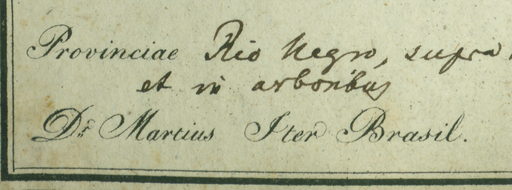 Provinciae Rio Negro, supra
et in arboribus
Dr. Martius Iter Brasil.